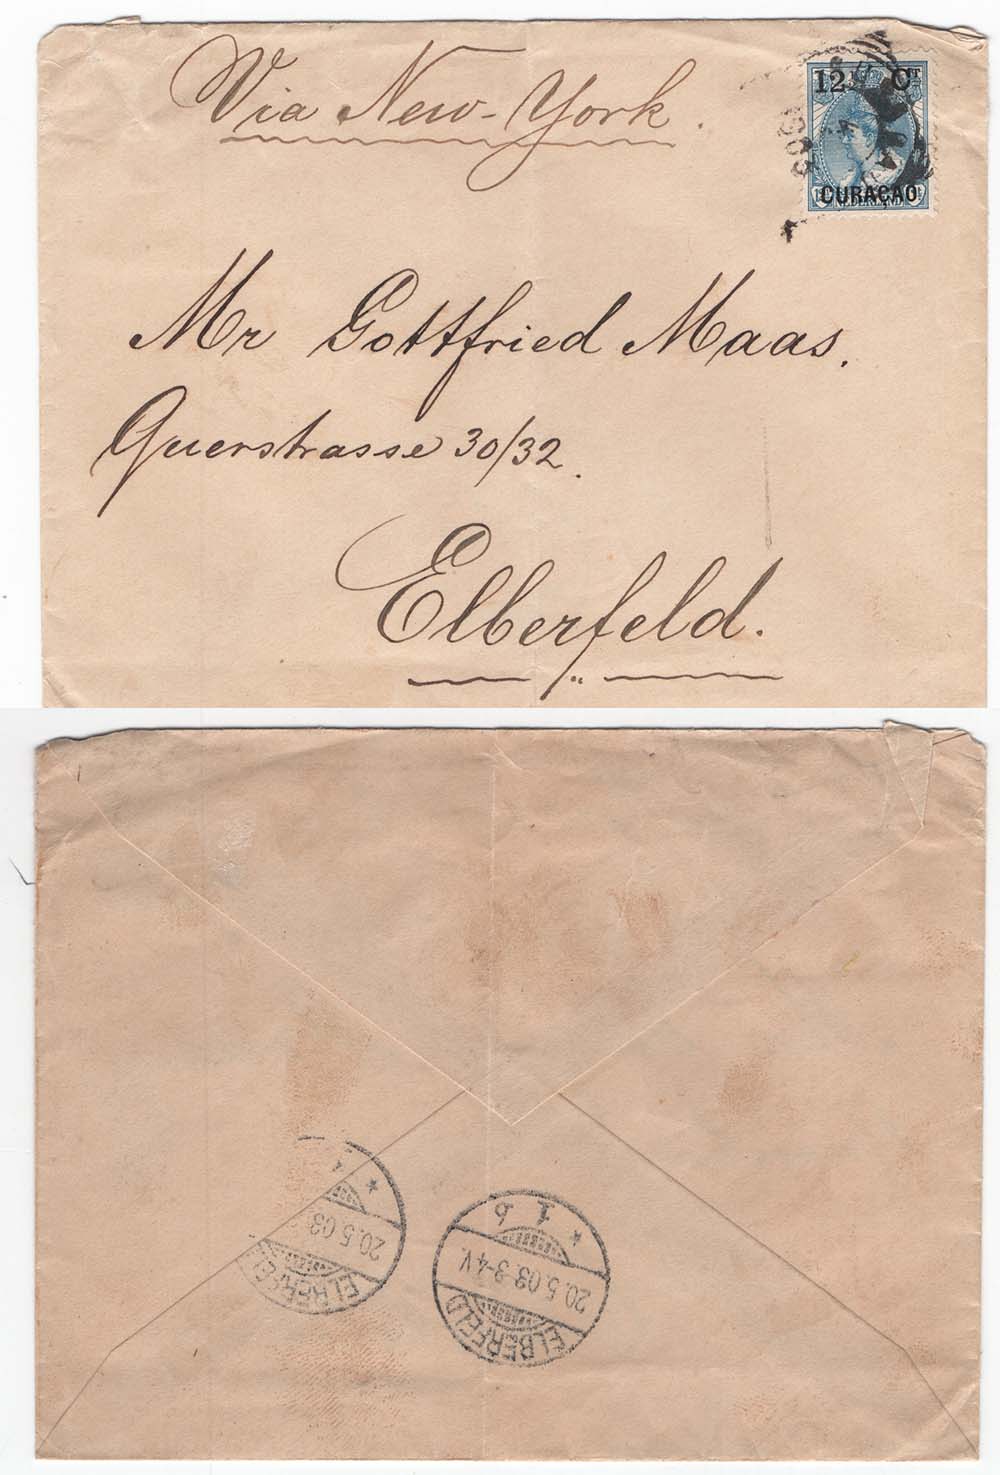 Via New-York.
12½ CT
CURAÇAO
NEDERLAND
1903
Mr Gottfried Maas.
Querstrasse 30/32.
Elberfeld.
20.5.03
ELBERFELD
* 1 b
20.5.03. 3-4 V.
ELBERFELD